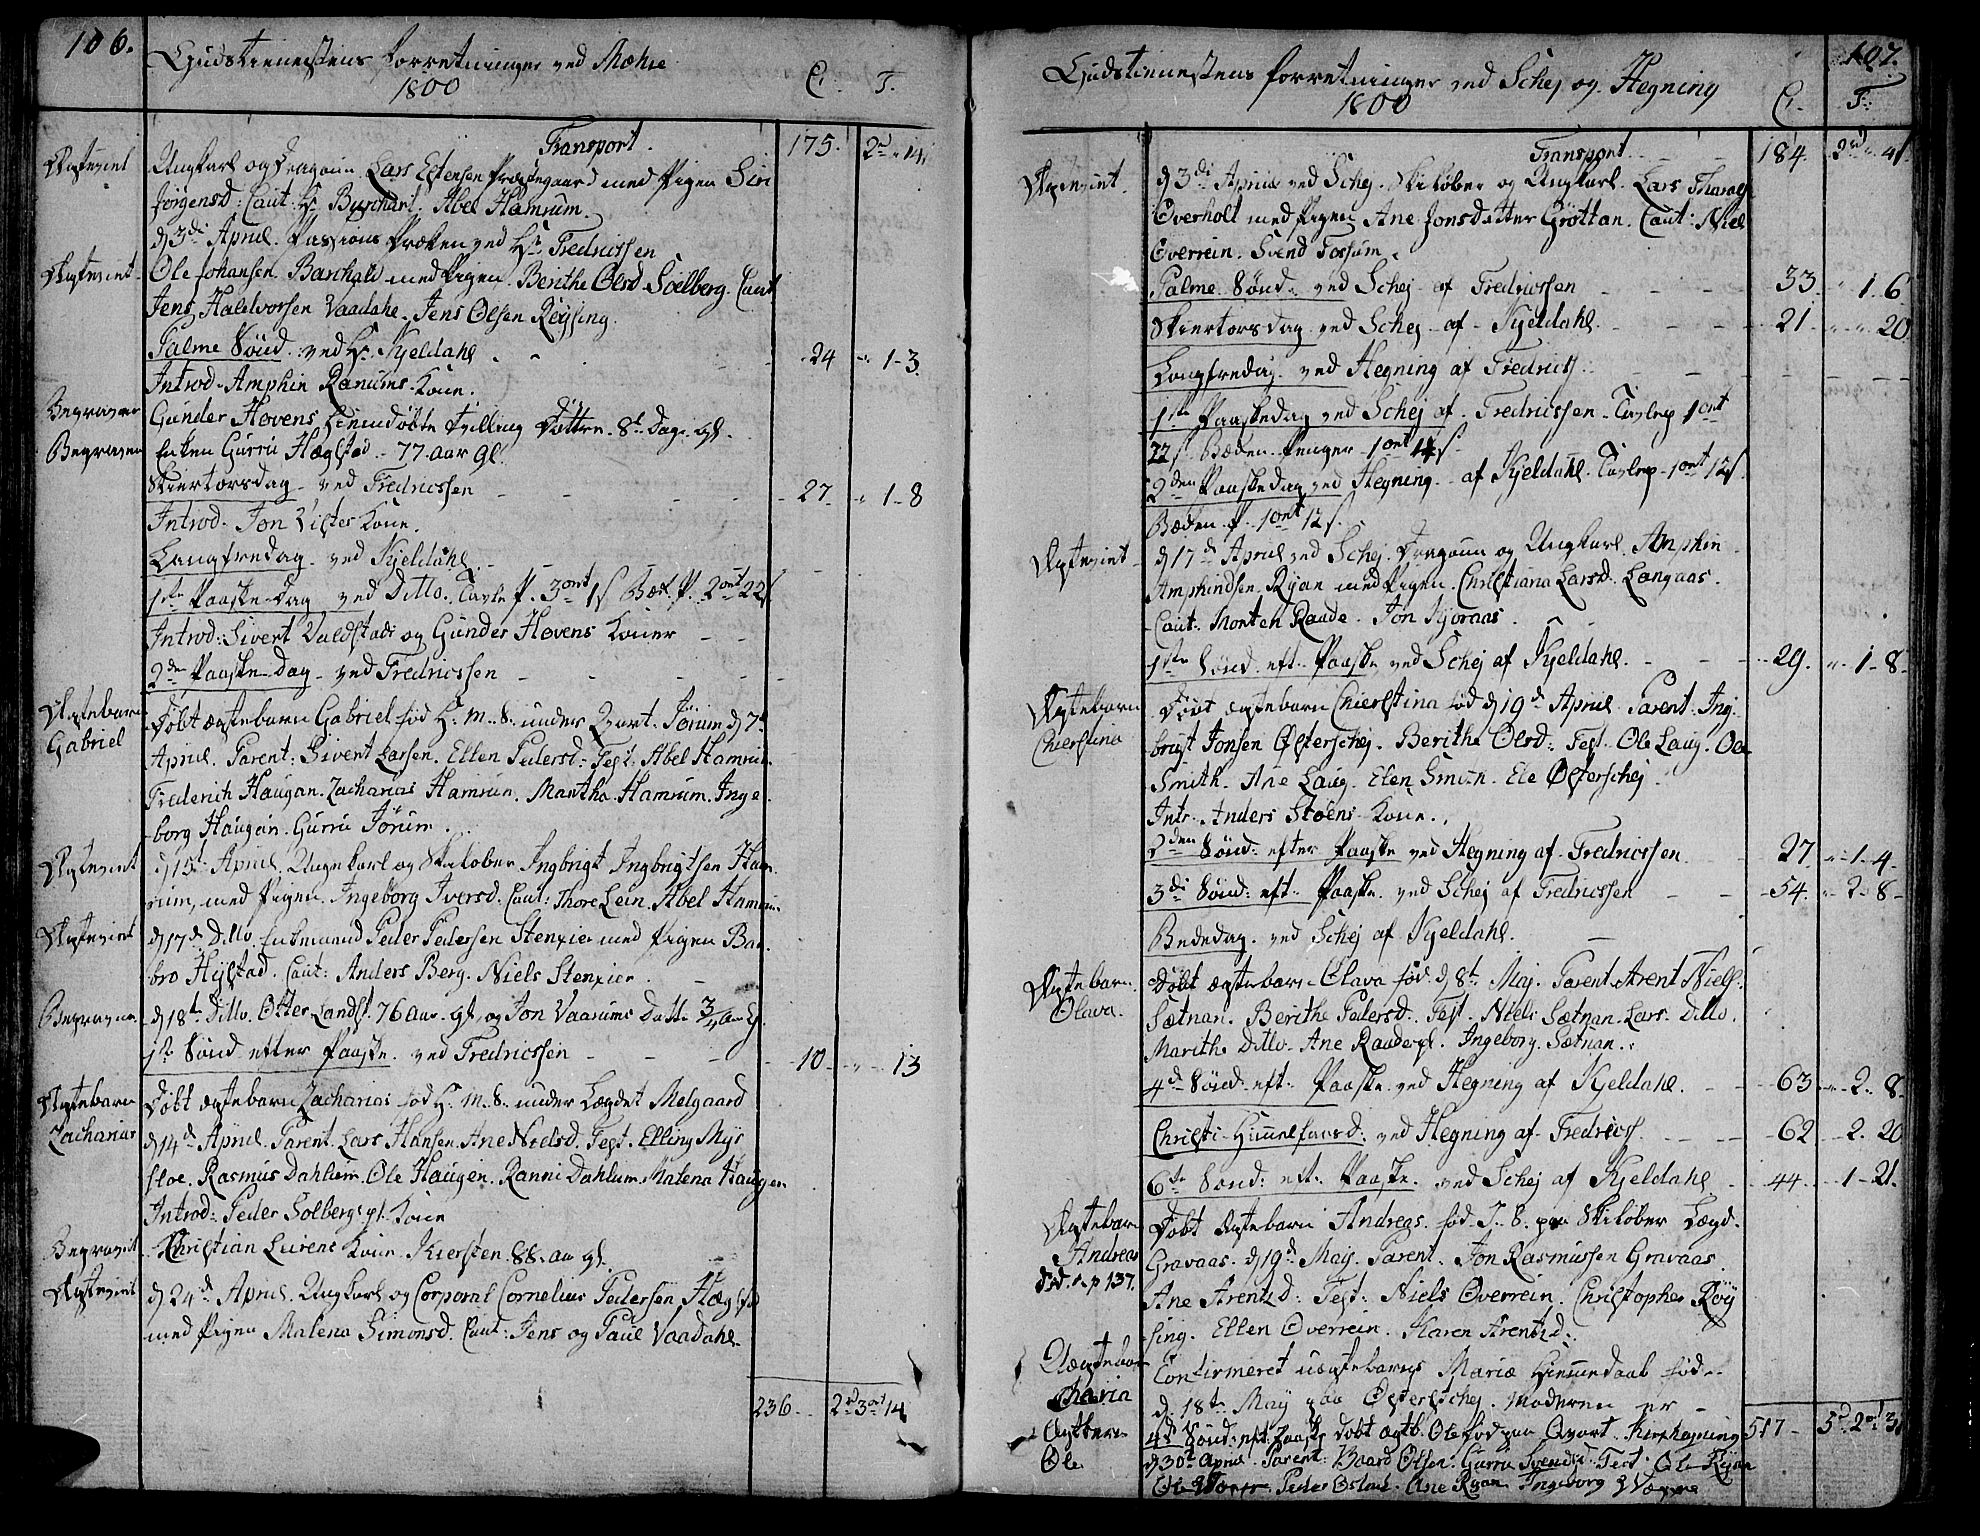 106.
Gudstienestens forretninger ved Mæhre
1800
C. T.
Transport. 175. 2d " 14
Ægteviet Ungkarl og Dragoun Lars Estensen Præstegaard med Pigen Siri
Jørgensd: Caut: Hr Burchart. Abel Hamrum.
d 3di April. Passions Præken ved Hr Fredricssen
Ægteviet Ole Johansen Barchald med Pigen Berithe Olsd Soelberg. Caut
Jens Haldvorsen Vaadahl. Jens Olsen Røysing.
Palme Sønd. ved Hr Kjeldahl - 24 " 1-3.
Introd. Amphin Ranums Kone.
Begraven Gunder Hovens hiemdøbte Tvilling Dotter 8t Dage gl.
Begraven Enken Gurru Hæglstad - 77 aar gl.
Skiertorsdag - ved Fredricssen - 27 " 1-8
Introd. Jon Kone.
Langfredag - ved Kjeldahl.
1ste Paaske-Dag ved Ditto. Tavle P. 3ort 1s Bæk. P. 2ort 22s
Introd: Sivert Valdstads og Gunder Hovens Koner
2den Paaske-Dag - ved Fredricssen
Ægtebarn Gabriel Døbt ægtebarn Gabriel fød H. M. S. under Qvart. Jørum d 7d
April. Parent: Sivert Larsen. Ellen Pedersd: Test: Abel Hamrum.
Frederich Haugan. Zacharias Hamrun. Martha Hamrum. Inge
borg Haugan. Gurru Jørum.
Ægteviet d 15t April. Ungekarl og Skieløber Ingbrigt Ingbrigtsen Ham
rum, med Pigen Ingeborg Iversd. Caut: Thore Lein. Abel Hamrum.
Ægteviet d 17d Ditto. Enkemand Peder Pedersen Stenxier med Pigen Bar
bro Hylstad. Caut: Anders Berg. Niels Stenxier.
Begraven d 18t Ditto. 76 aar gl. og Jon Vaarums Datt. 3/4 aar gl.
1ste Sønd. efter Paaske. ved Fredricssen - 10 - " - 13
Ægtebarn Zacharias Døbt ægtebarn Zacharias fød H. M. S. under Lægdet Melgaard
d 14d April. Parent. Lars Hansen. Ane Nielsd. Test. Elling Mys
floe. Rasmus Dahlum. Ole Haugen. Ranni Dahlum. Malena Haugen
Introd: Peder Solbergs pl. Kone
Begravet Christian Kone. Kiersten 88. aar gl.
Ægteviet d 24d April. Ungkarl og Corporal Cornelius Pedersen Hæglstad
med Pigen Malena Simonsd. Caut: Jens og Paul Vaadahl.
236. 2d 3ort 14
107.
Gudstienestens forretninger ved Schej og Hegning
1800
C. T.
Transport 184. 2d " 41
Ægteviet. d 3di April ved Schej. Skiløber og Ungkarl. Lars
Overholt med Pigen Ane Jonsdatter Grøttan. Caut: Niel
Overrein. Svend Fossum.
Palme Sønd: ved Schej af Fredricssen - 33 " 1. 6
Skiertorsdag ved Schej af Kjeldahl. - 21 " " 20
Langfredag. ved Hegning af Fredricss:
1ste Paaskedag ved Schej af Fredricssen. Tavlep 1ort
22s. Bæden Penger 1ort 14s.
2den Paaskedag ved Hegning - af Kjeldahl. Tavlep - 1ort 12s.
Bæden p. 1ort 12s.
Ægteviet d 17d April ved Schej. Dragoun og Ungkarl. Amphin
Amphindsen Ryan med Pigen. Christiana Larsd. Langaas.
Caut: Morten Raade. Jon Kjoraas.
1ste Sønd. eft. Paaske ved Schej af Kjeldahl. - 29. " 1-8
Ægtebarn Chierstina Døbt ægtebarn Chierstina fød d 19d April. Parent. Ing-
brigt Jonsen Østerschej. Berithe Olsd: Test. Ole Laug. Ole
Smith. Ane Laug. Elen Smith. Ele Østerschej.
Intr. Anders Støens Kone.
2den Sønd: efter Paaske ved Hegning af Fredricssen. 27 " 1-4
3di Sønd: eft. Paaske. ved Schej af Fredricssen - 54. " 2-8
Bededag. ved Schej af Kjeldahl.
Ægtebarn Olava. Døbt ægtebarn Olava fød d 8t Maj. Parent Arent Niels:
Sætnan. Berithe Pedersd. Test. Niels Sætnan. Lars Ditto.
Marithe Ditto. Ane Raadespl. Ingeborg Sætnan.
4d Sønd. eft. Paaske ved Hegning af Kjeldahl. - 63 " 2. 8
Christi-Himmelfarsd. ved Hegning af Fredricss. - 62 - 2. 20
6te Sønd: eft. Paaske. ved Schej af Kjeldahl - 44. - 1-21.
Ægtebarn Andreas død. s. p 137. Døbt Ægtebarn Andreas. fød J. S. paa Skiløber Lægd.
Gravaas. d 19d Maj. Parent. Jon Rasmussen Gravaas.
Ane Arentzd: Test: Niels Overrein. Christopher Røy
sing. Ellen Overrein. Karen Arentzd:
Uægtebar Maria Confirmeret uægtebarns Mariæ Hiemmedaab fød
d. 18te May paa Østerschej. Moderen er -
Ægtebarn Ole 4d Sønd: eft: Paaske døbt ægtb. Ole fød paa Qvart. Kirkhegning 517 - 5d 2ort 3
d 30t April. Parent: Baard Olsen. Gurru Svendsd. Test. Ole Ryan
Peder Ane Ryan Ingeborg